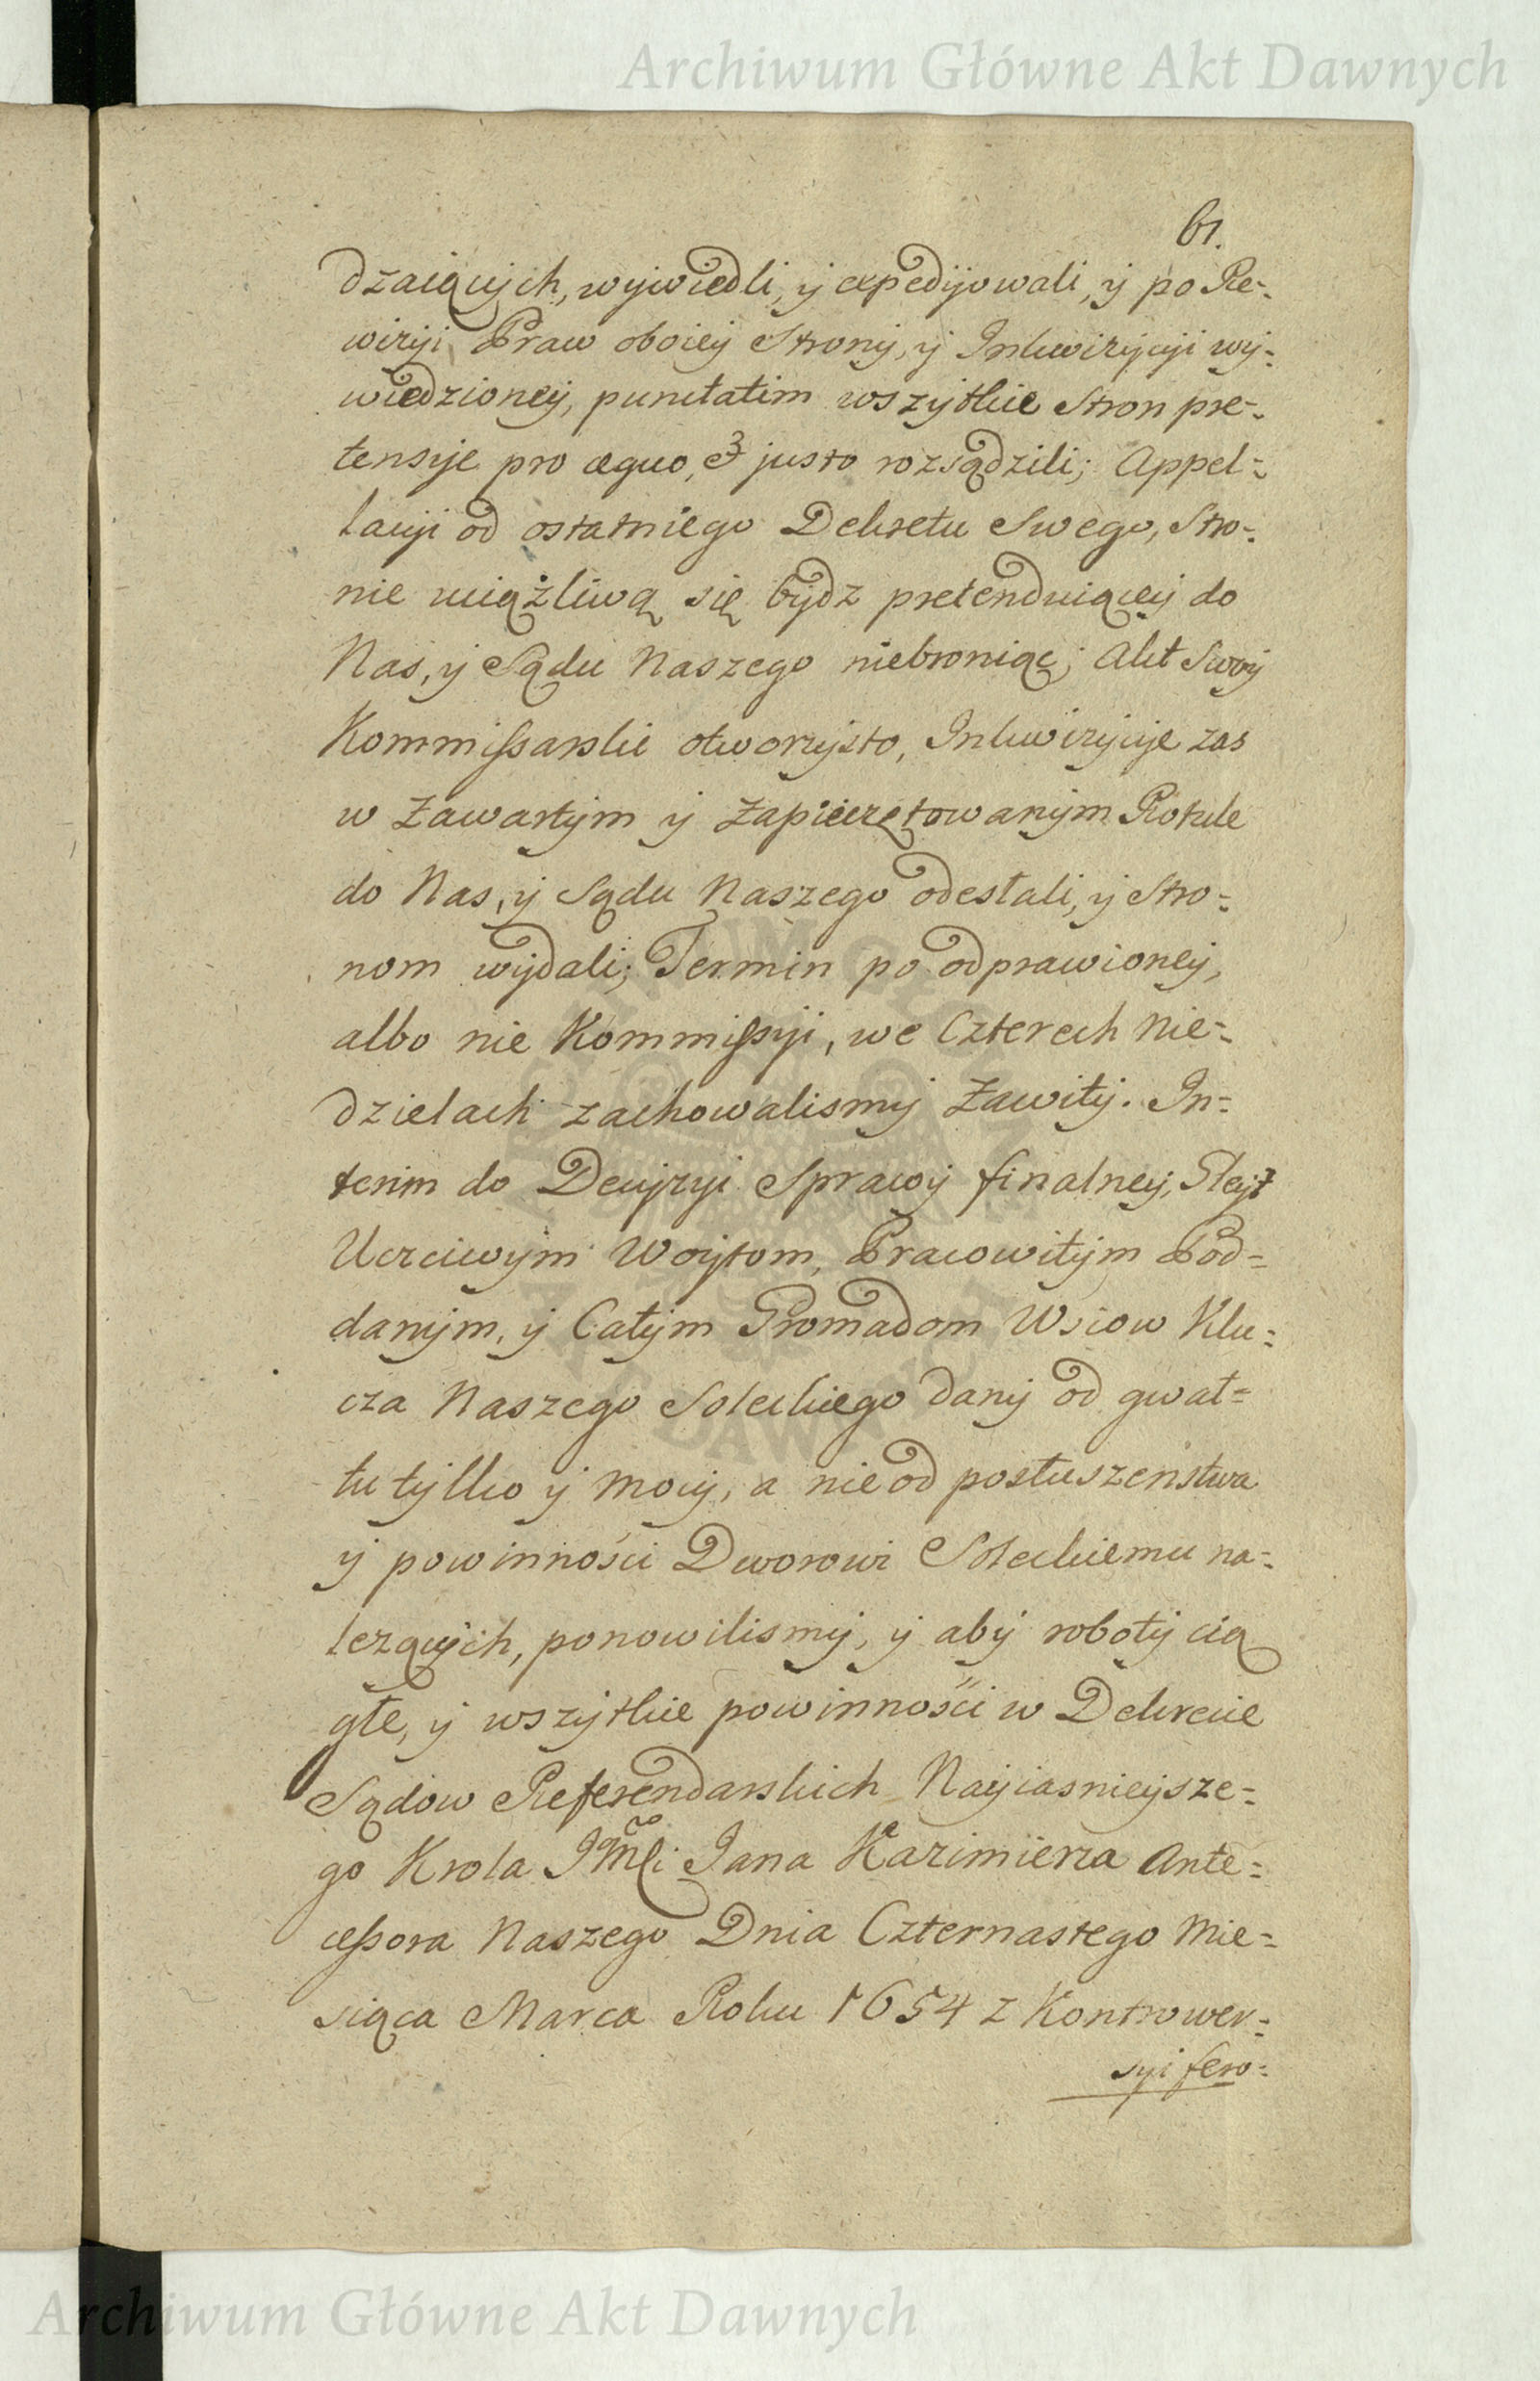 Archiwum Główne Akt Dawnych
61.
dzaiących, wywiedli, y expedyowali, y po Re-
wizyi Praw oboiey Strony, y Inkwizycyi wy-
wiedzioney, punctatim wszytkie Stron pre-
tensye pro æquo, & justo rozsądzili; Appel-
lacyi od ostatniego Dekretu Swego, Stro-
nie uciążliwą się bydz pretenduiącey do
Nas, y Sądu Naszego niebroniąc; Akt Swoy
Kommissarski otworzysto, Inkwizycye zas
w Zawartym y Zapieczętowanym Rotule
do Nas, y Sądu Naszego odesłali, y Stro-
nom wydali; Termin po odprawioney,
albo nie Kommissyi, we Czterech Nie-
dzielach zachowalismy Zawity. In-
terim do Decyzyi Sprawy finalney, Gleyt
Uczciwym Woytom, Pracowitym Pod-
danym, y Całym Gromadom Wsiow Klu-
cza Naszego Soleckiego dany od gwał-
tu tylko y mocy, a nie od posłuszenstwa
y powinności Dworowi Soleckiemu na-
lezących, ponowilismy, y aby roboty cią
głe, y wszytkie powinności w Dekrecie
Sądow Referendarskich Nayiasnieysze-
go Krola JMści Jana Kazimierza Ante-
cessora Naszego Dnia Czternastego Mie-
siąca Marca Roku 1654 z Kontrower-
syi fero-
Archiwum Główne Akt Dawnych